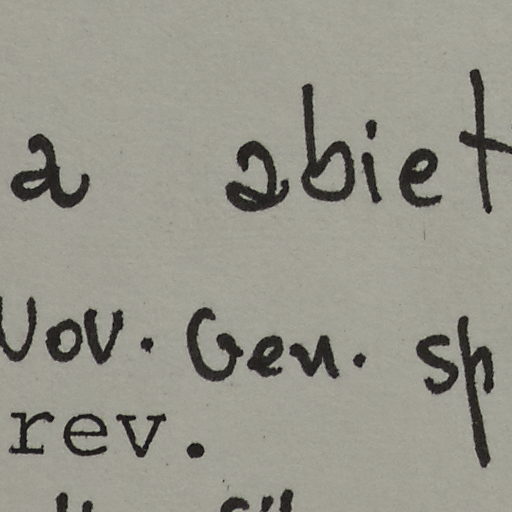 a abiet
Nov. Gen. sp
rev.